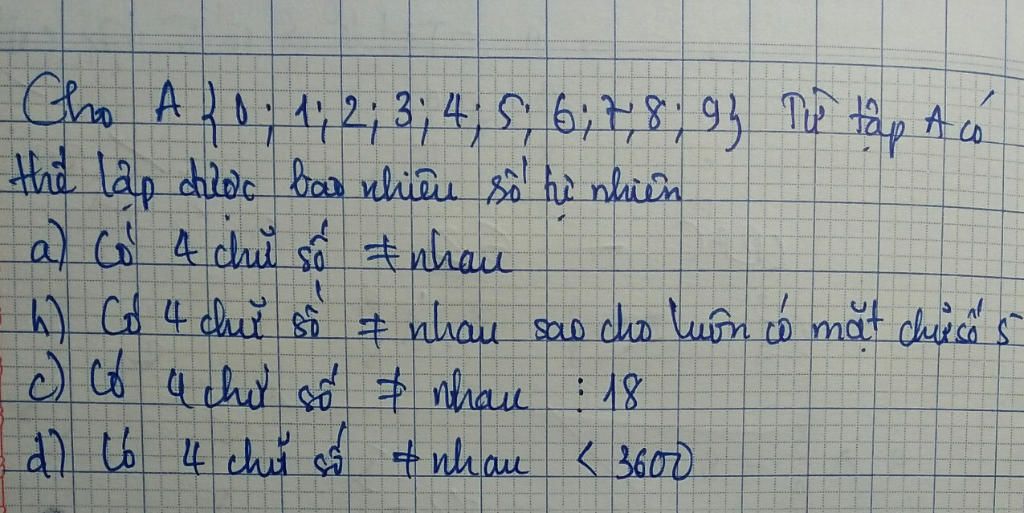 Cho A {0; 1; 2; 3; 4; 5; 6; 7; 8; 9} Từ tập A có
thể lập được bao nhiêu số tự nhiên
a) Có 4 chữ số ≠ nhau
b) Có 4 chữ số ≠ nhau sao cho luôn có mặt chữ số 5
c) Có 4 chữ số ≠ nhau ⋮ 18
d) Có 4 chữ số ≠ nhau < 3600